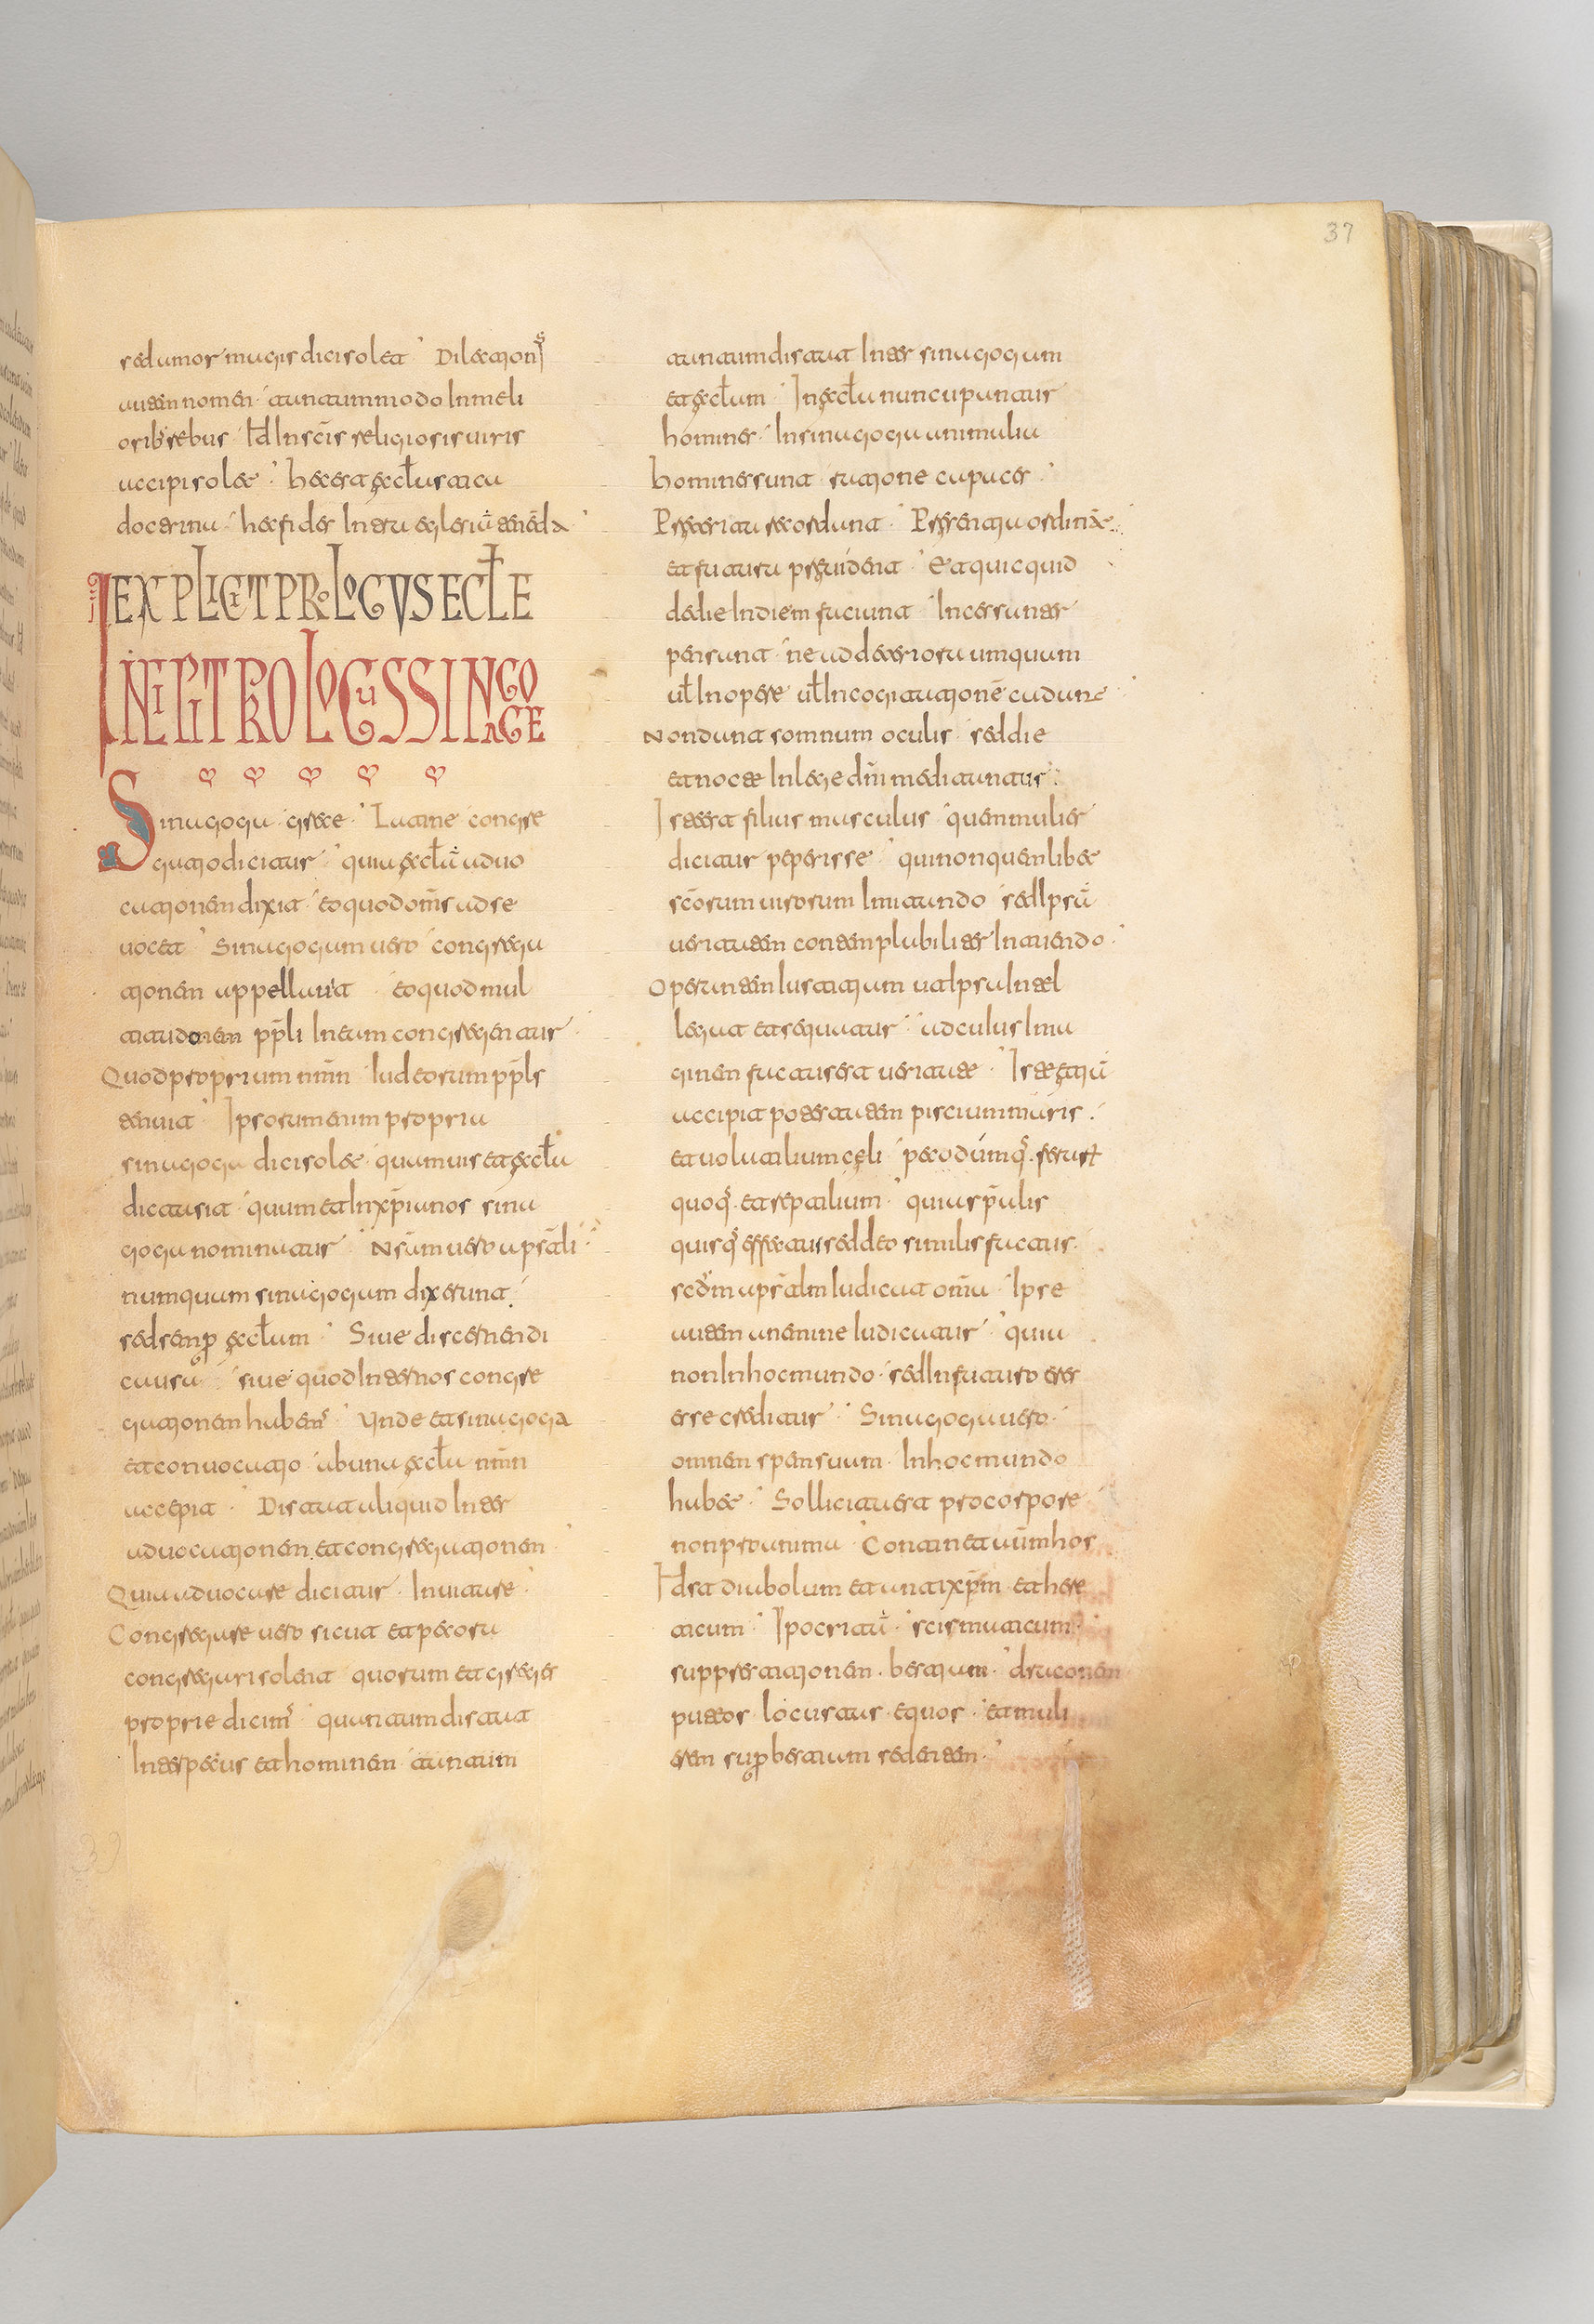 37
sed amor magis dici solet · Dilectionis
autem nomen · tantummodo In meli
orib; rebus · Id In scīs religiosis uiris
accipi solet · hec est ęcłastica
doctrina · hec fides
EXPLICIT PROLOGUS ECŁE
INCIPIT PROLOGUS SINAGOGE
Sinagoga · grece · Latine congre
gatio dicitur · quia ęcłam aduo
cationem dixit · eo quod omīs ad se
uocet · Sinagogam uero congrega
tionem appellauit · eo quod mul
titudonem ppłi In eum congregentur
Quod proprium nmn Iudeorum ppłs
tenuit · Ipsorum enim propria
sinagoga dici solet · quamuis et ęcła
dicta sit · quam et In xpīanos sina
goga nominatur · Nsam uero apsłi
numquam sinagogam dixerunt
sed semp ęcłam · Siue discernendi
causa · siue quod Inter nos congre
gationem habemus · Unde et sinagoga
et conuocatio · ab una ęcła nmn
accepit · Distat aliquid Inter
aduocationem et congregationem
Quia aduocare dicitur Inuitare ·
Congregare uero sicut et pecora
congregari solent quorum et greges
proprie dicim; · quantum distat
Inter pecus et hominem · tantum
tantum distat Inter sinagogam
et ęcłam · In ęcła nuncupantur
homines · In sinagoga animalia
homines sunt ratione capaces ·
Pręterita recordunt · Pręsentia ordinat
et futura pręuident · Et quicquid
de die In diem faciunt · Incessunter
pensant · ne ad deteriora umquam
uł In opere uł In cogitationē cadant
Non dunt somnum oculis sed die
et nocte In lege dni meditantur ·
Iste est filius masculus · quem mulier
dicitur peperisse · qui non quemlibet
scōrum uirorum Imitando sed Ipsā
ueritatem contemplabiliter Intuendo ·
Operatur enim
legat et sequatur · ad cuius Ima
ginem factus est ueritate · Iste etiā
accipit potestatem piscium maris ·
et uolatilium celi · pecodumq; ferust
quoq; et reptilium · qui aspīalis
quisq; effectus sed deo similis factus
scdm apsłm Iudicat omīa · Ipse
autem a nemine Iudicatur · quia
non In hoc mundo · sed In futuro eres
esse creditur · Sinagoga uero ·
omnem spem suam · In hoc mundo
habet · Sollicita est pro corpore
non pro anima · Continet autem hos
Id est diabolum et antixpm et here
ticum · Ipocritā · scismaticum
supprestitionem · bestiam · draconem
puteos · locustas · equos · et muli
erem sup bestiam sedentem ·